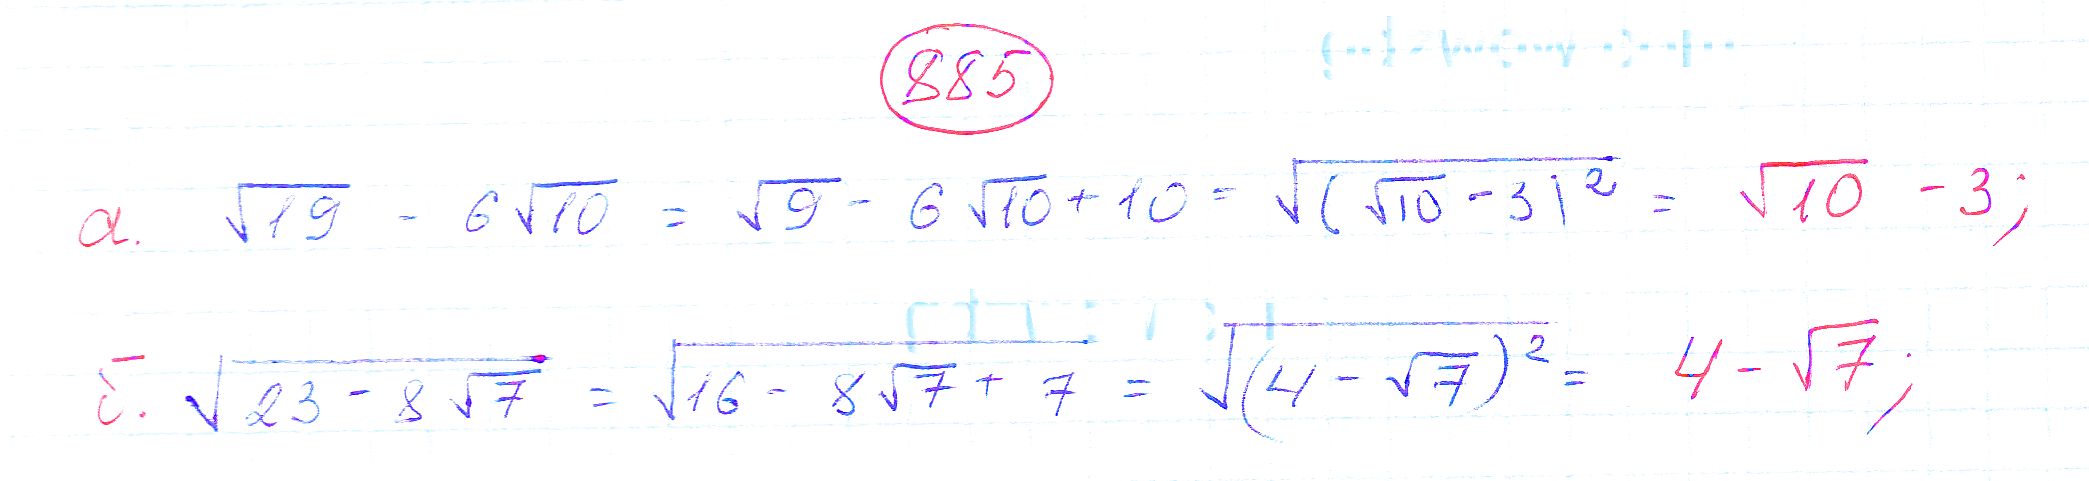 885
a. √19 - 6√10 = √9 - 6√10 + 10 = √(√10 - 3)² = √10 - 3;
б. √(23 - 8√7) = √(16 - 8√7 + 7) = √(4 - √7)² = 4 - √7;